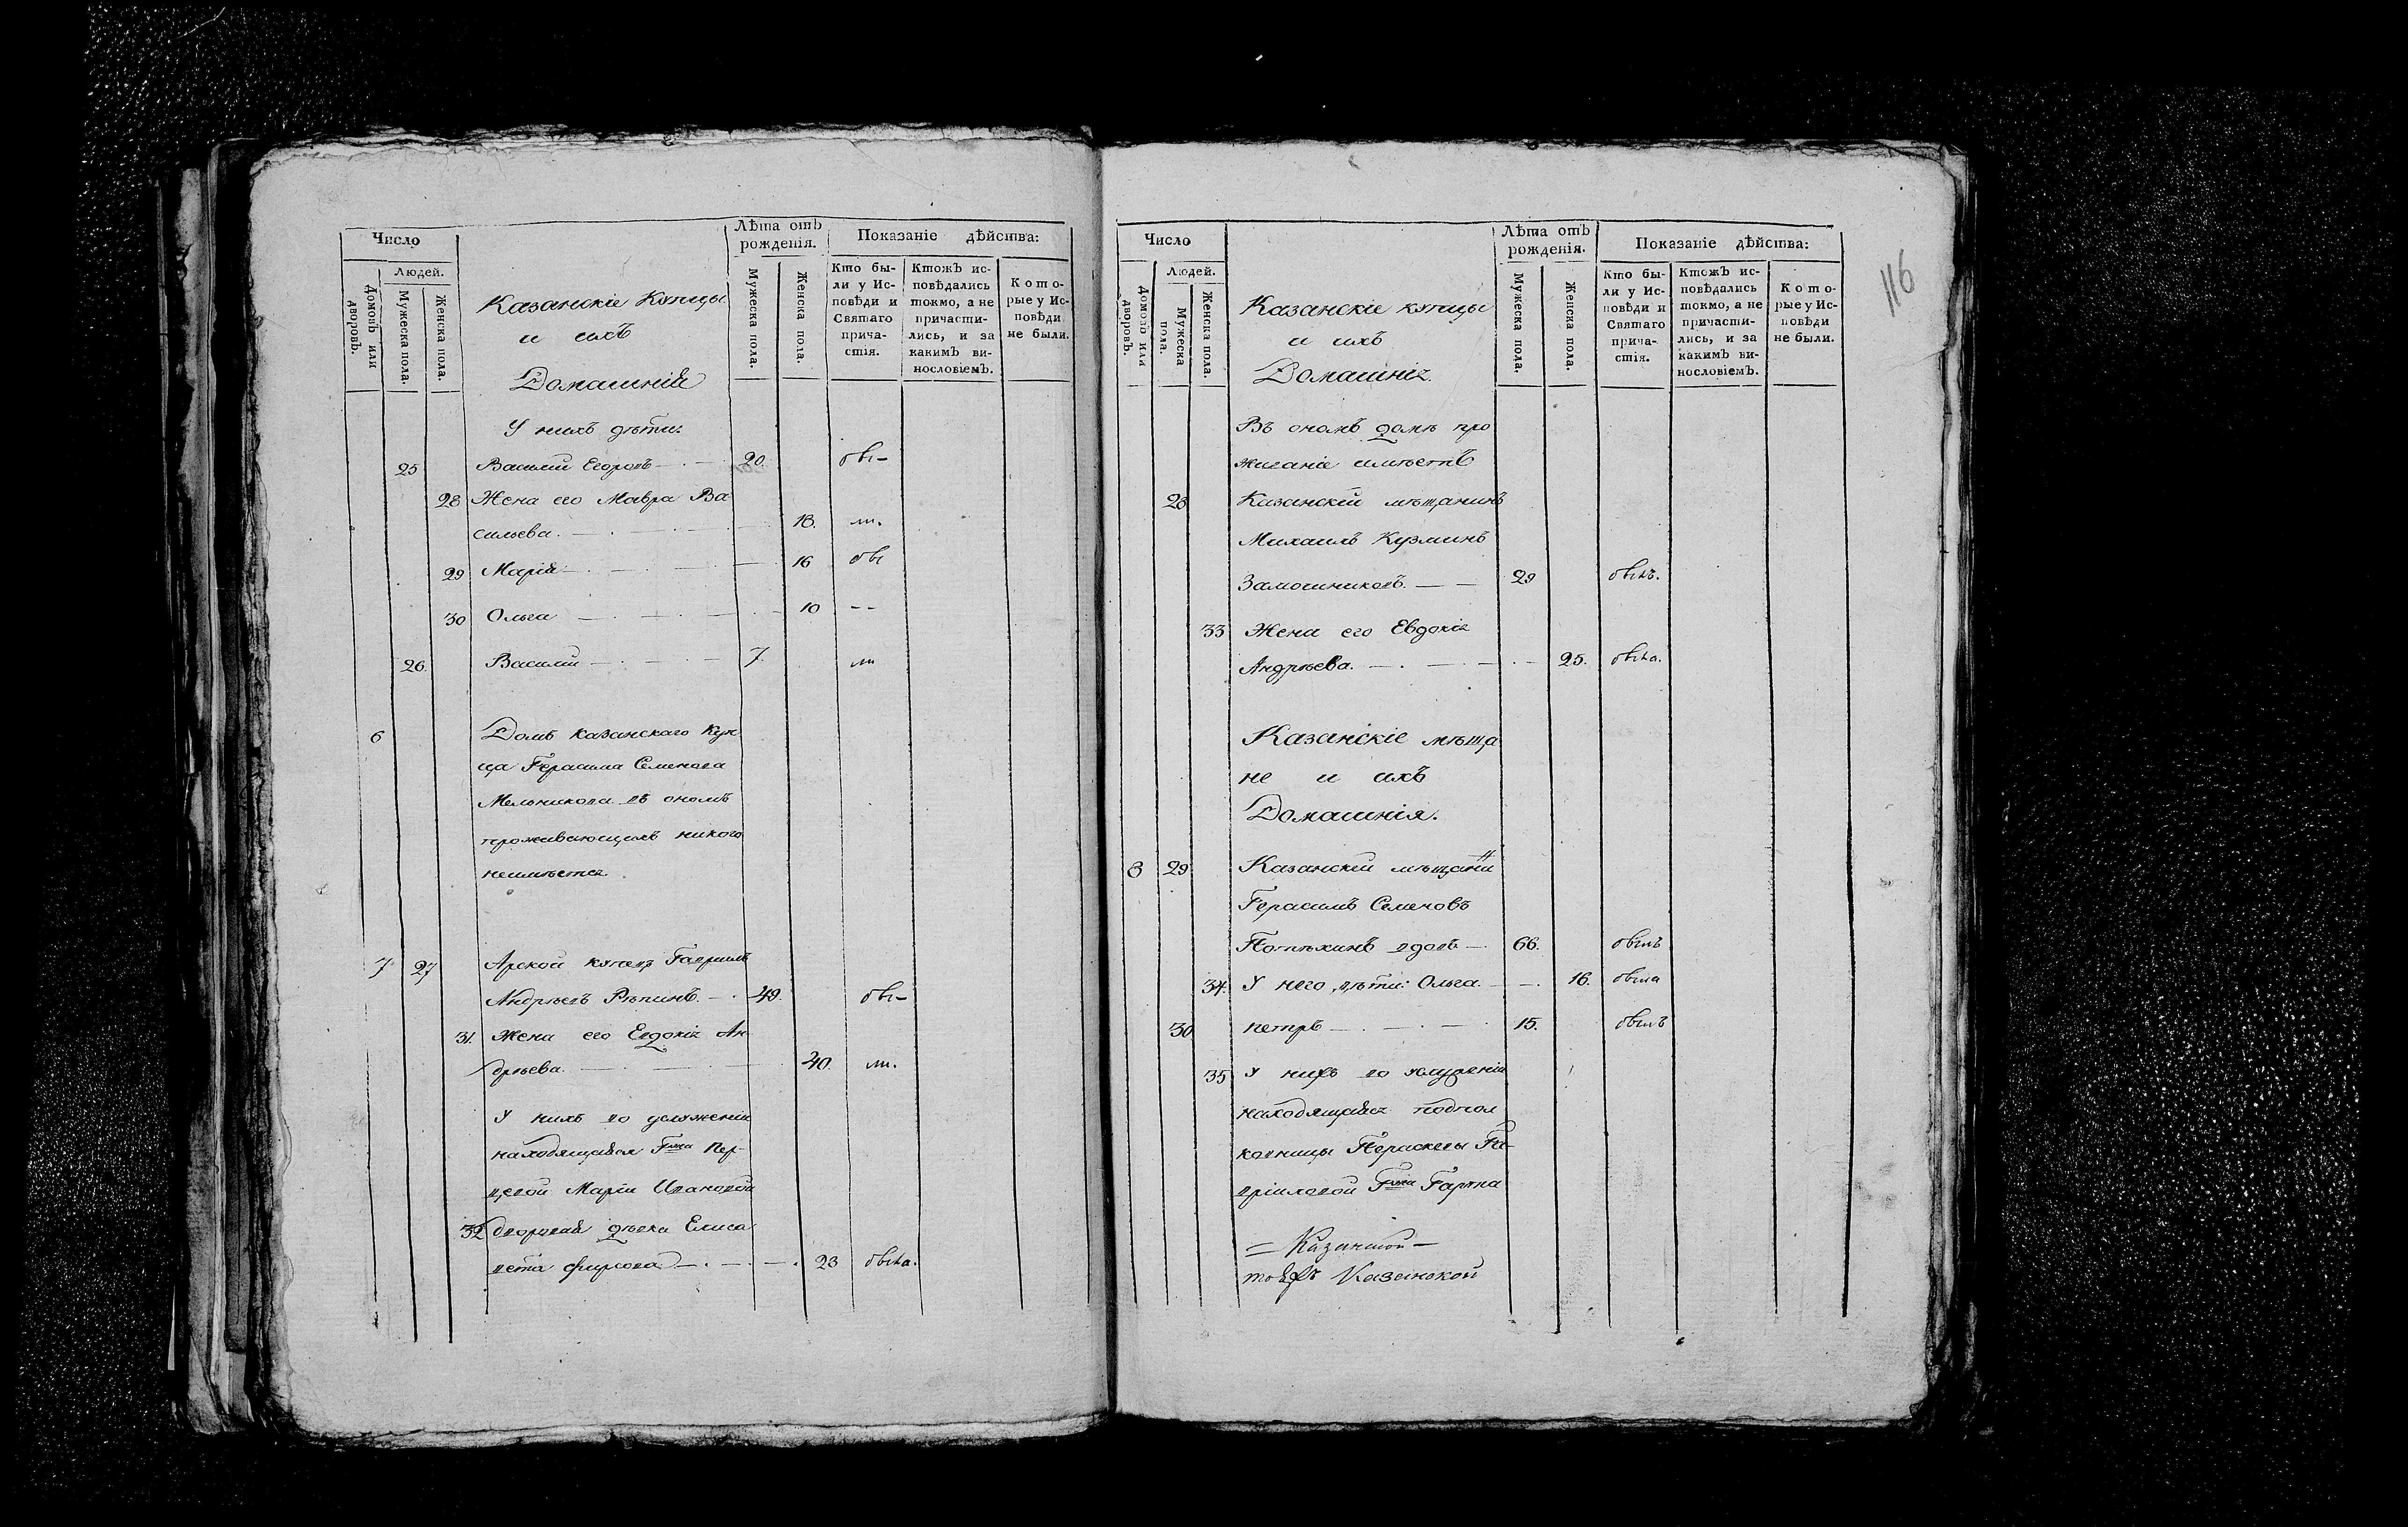 Число
Людей.
Домовъ или дворовъ.
Мужеска пола.
Женска пола.
Казанскіе Купцы
и ихъ
Домашнія
Лѣта отъ рожденія.
Мужеска пола.
Женска пола.
Показаніе дѣйства:
Кто бы-
ли у Ис-
повѣди и
Святаго
прича-
стія.
Ктожъ ис-
повѣдались
токмо, а не
причасти-
лись, и за
какимъ ви-
нословіемъ.
Кото-
рые у Ис-
повѣди
не были.
У нихъ дѣти:
25 Василій Егоровъ 20.
28 Жена его Мавра Ва
сильева. 18.
29 Марія 16
30 Ольга 10
26. Василій 7.
6 Домъ Казанскаго Куп
ца Герасима Семенова
Мельникова въ ономъ
проживающихъ никого
неимѣется
7 27 Арской купецъ Гавріилъ
Андрѣевъ Рѣпинъ 49.
31. Жена его Евдокія Ан-
дрѣева. 40.
У нихъ во услуженіи
находящаяся Гжи Пер-
цовой Маріи Ивановой
32 дворовая дѣвка Елиса
вета Фирсова 23 была.
Число
Людей.
Домовъ или дворовъ.
Мужеска пола.
Женска пола.
Казанскіе купцы
и ихъ
Домашнія.
Лѣта отъ рожденія.
Мужеска пола.
Женска пола.
Показаніе дѣйства:
Кто бы-
ли у Ис-
повѣди и
Святаго
прича-
стія.
Ктожъ ис-
повѣдались
токмо, а не
причасти-
лись, и за
какимъ ви-
нословіемъ.
Кото-
рые у Ис-
повѣди
не были.
116
Въ ономъ домѣ про
живаніе имѣетъ
28 Казанскій мѣщанинъ
Михаилъ Кузминъ
Замошниковъ. 29 былъ.
33 Жена его Евдокія
Андрѣева. 25. была.
Казанскіе мѣща
не и ихъ
Домашнія.
8 29 Казанскій мѣщанинъ
Герасимъ Семеновъ
Потѣхинъ вдовъ 66. былъ
34. У него дѣти: Ольга. 16. была
30 Петръ 15. былъ
35 У нихъ во услуженіи
находящаяся подпол
ковницы Параскевы Га-
вріиловой Гжи
Казанской